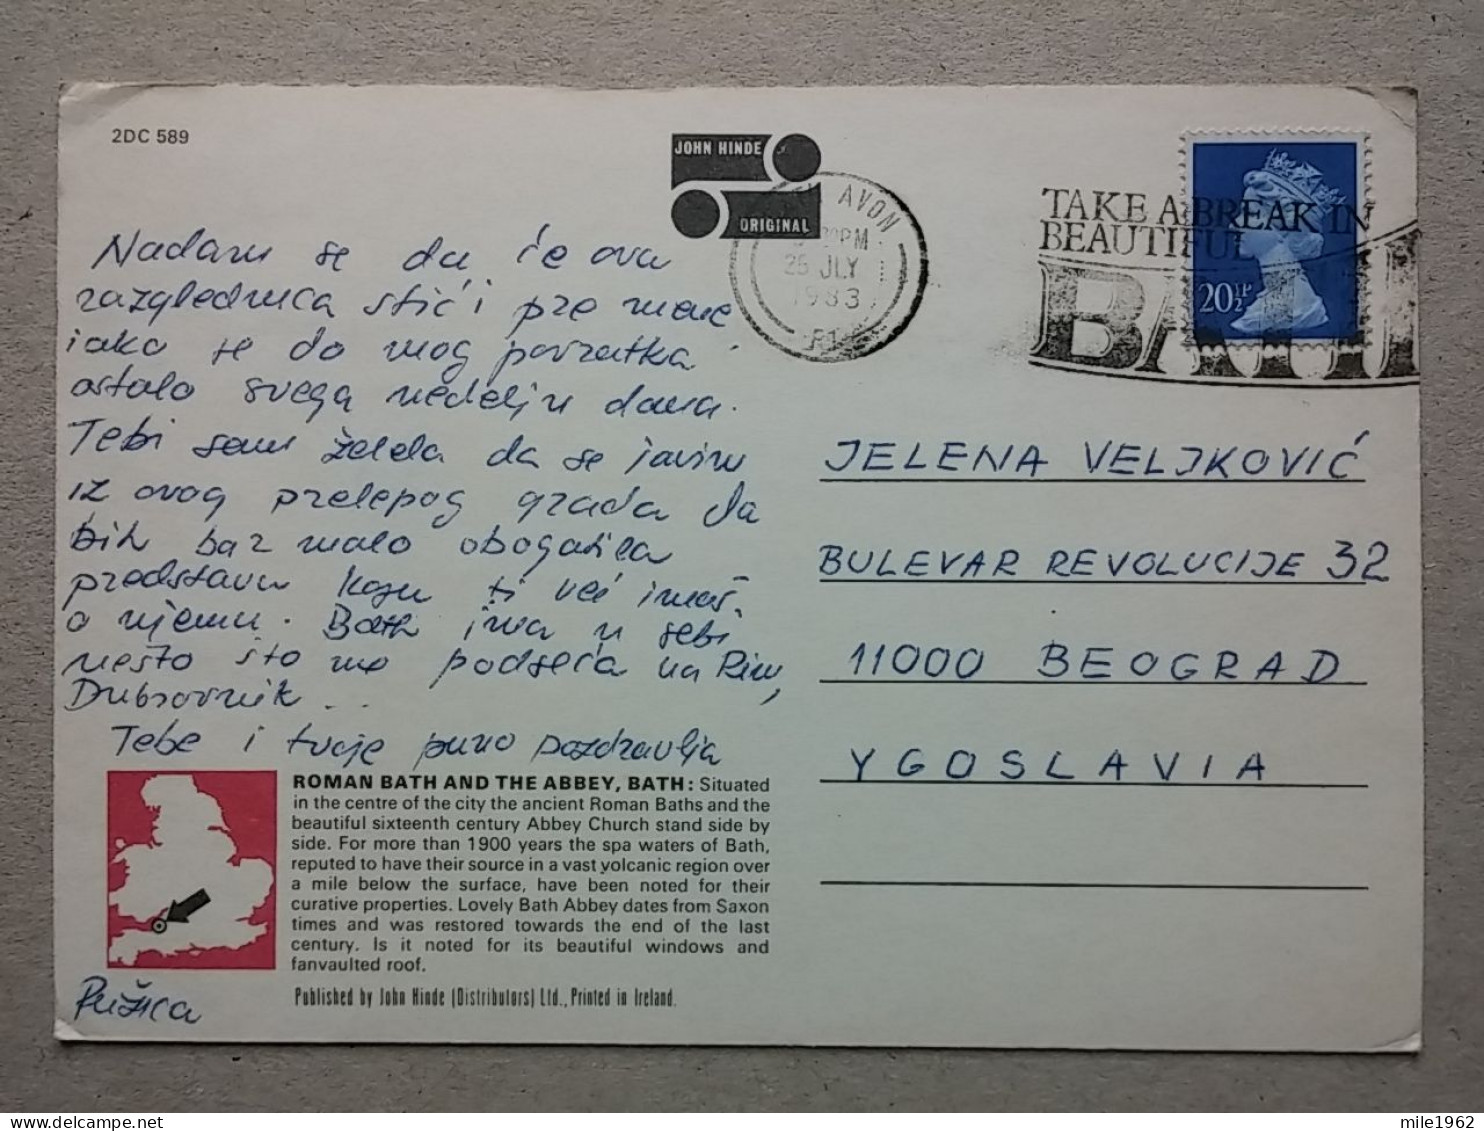 2DC 589
JOHN HINDE
ORIGINAL
AVON
PM
25 JLY
1983
TAKE A BREAK IN
BEAUTIFUL
BATH
20½P
Nadam se da će ova
razglednica stići pre mene
iako se do mog povratka
ostalo svega nedelju dana.
Tebi sam želela da se javim
iz ovog prelepog grada da
bih bar malo obogatila
predstavu koju ti već imaš
o njemu. Bath ima u sebi
nešto što me podseća na Rim,
Dubrovnik ...
Tebe i tvoje puno pozdravlja
Ružica
JELENA VELJKOVIĆ
BULEVAR REVOLUCIJE 32
11000 BEOGRAD
YGOSLAVIA
ROMAN BATH AND THE ABBEY, BATH: Situated
in the centre of the city the ancient Roman Baths and the
beautiful sixteenth century Abbey Church stand side by
side. For more than 1900 years the spa waters of Bath,
reputed to have their source in a vast volcanic region over
a mile below the surface, have been noted for their
curative properties. Lovely Bath Abbey dates from Saxon
times and was restored towards the end of the last
century. Is it noted for its beautiful windows and
fanvaulted roof.
Published by John Hinde (Distributors) Ltd., Printed in Ireland.
mile1962